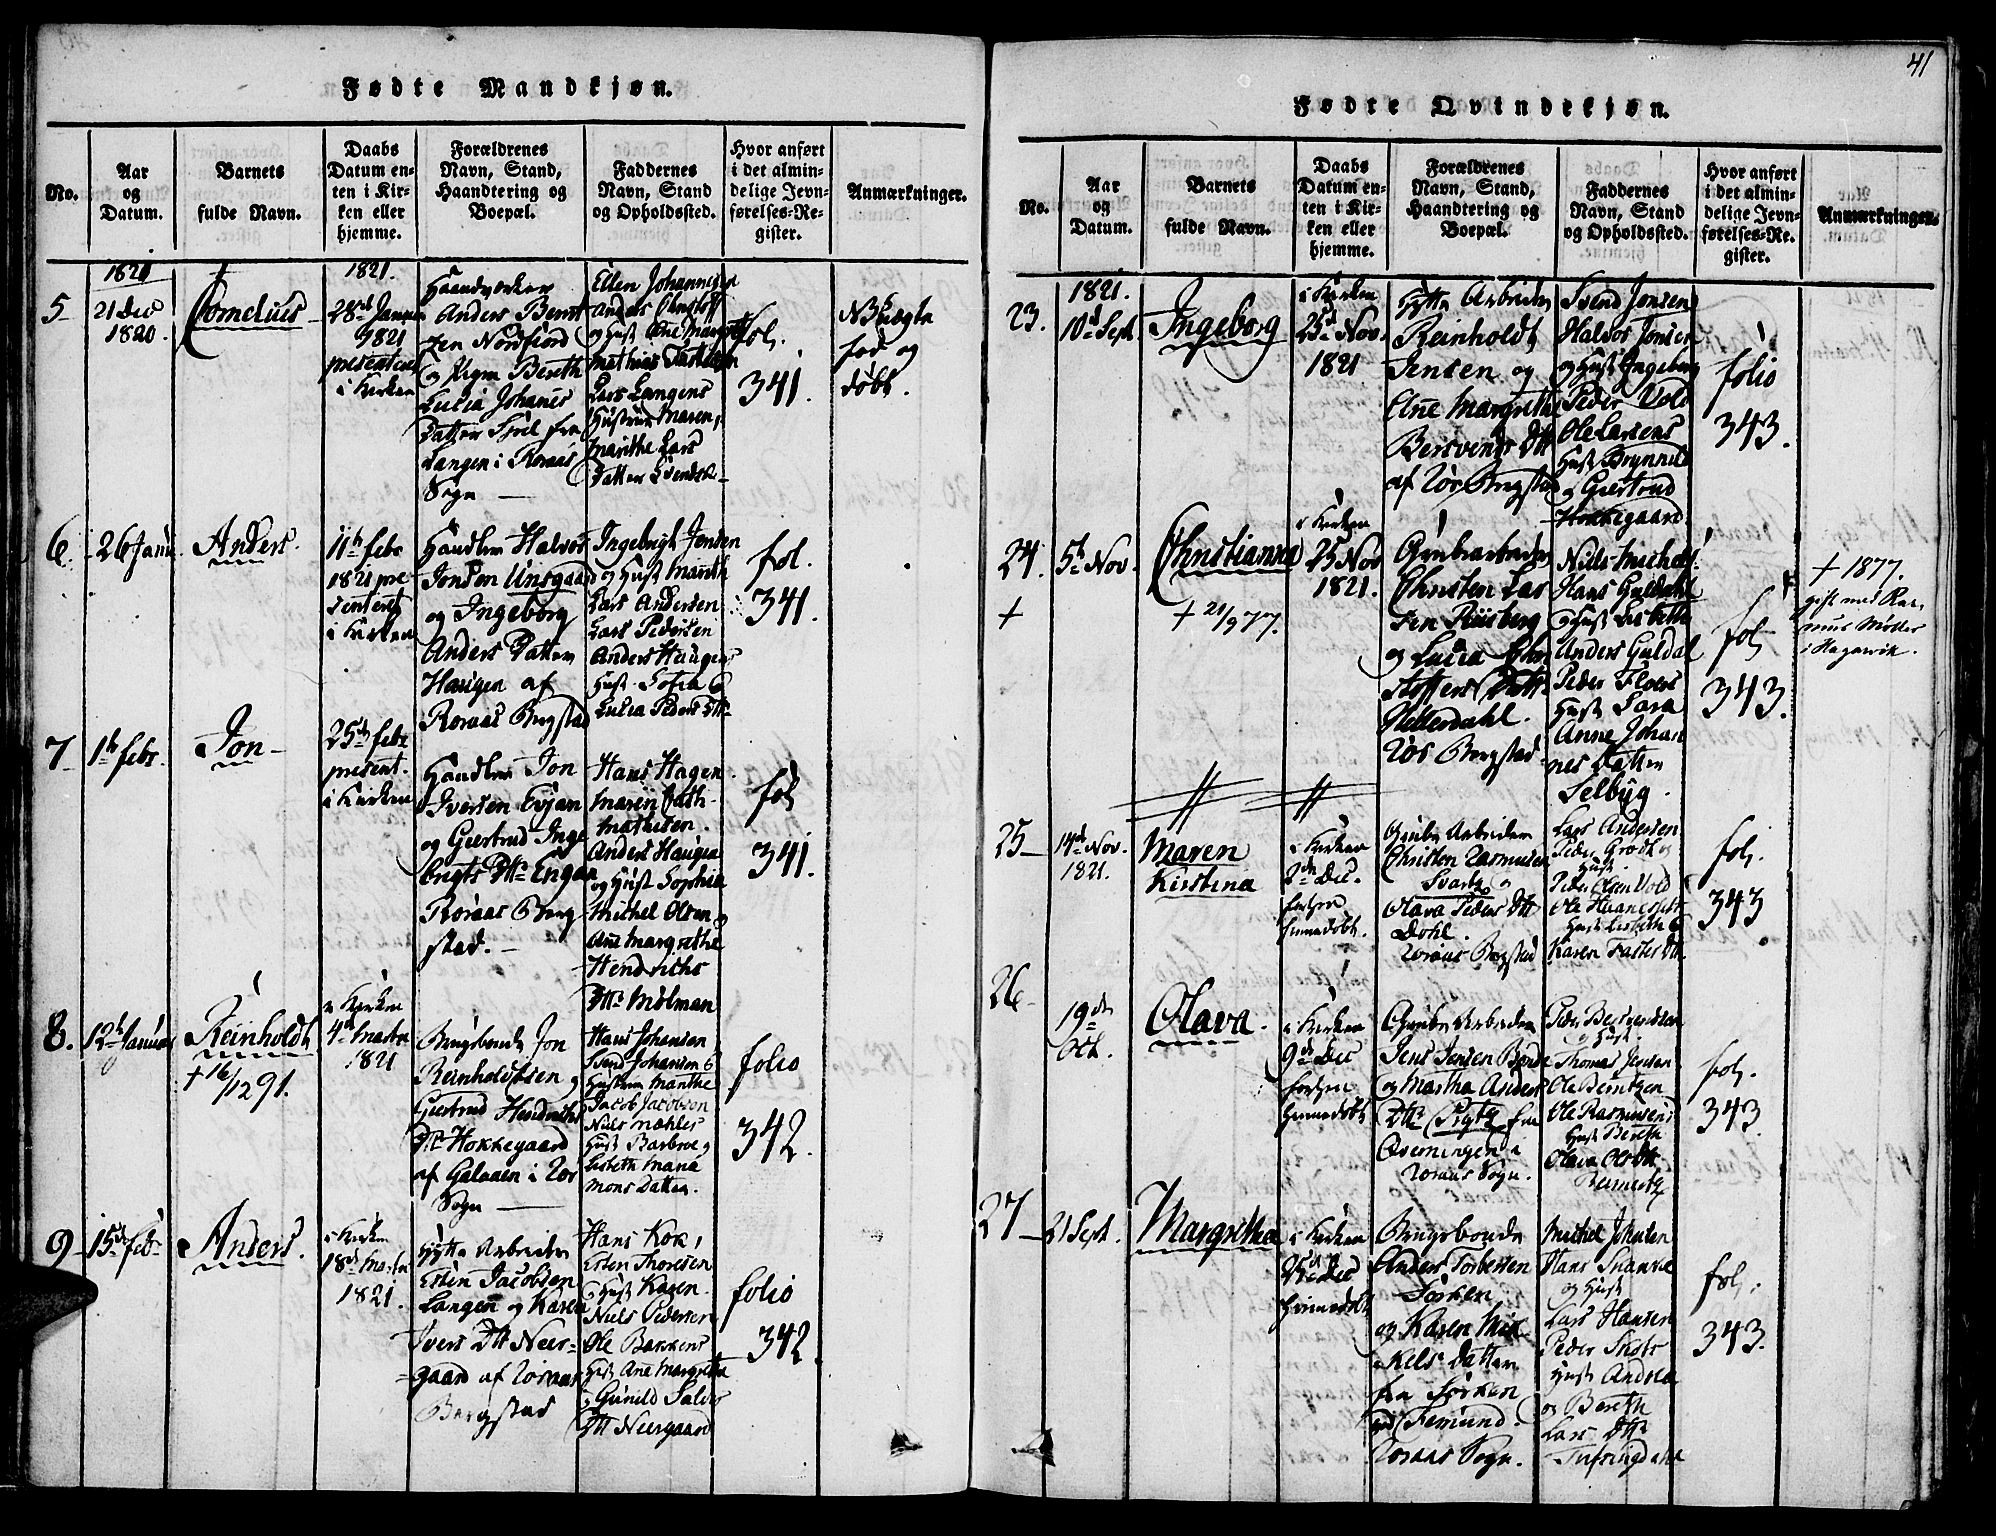 41
Fødte Mandkjøn.
No.
Aar
og
Datum.
Barnets
fulde Navn.
Daabs
Datum en-
ten i Kir-
ken eller
hjemme.
Forældrenes
Navn, Stand,
Haandtering og
Boepæl.
Faddernes
Navn, Stand
og Opholdssted.
Hvor anført
i det almin-
delige Jevn-
førelses-Re-
gister.
Anmærkninger.
5
21 Dec
1820
Cornelius
1821.
28de Januar
1821
presenteret
i Kirken
Haandværker
Anders Bernt
zen Nordfiord
og Pigen Bereth
Lucia Johanes
Datter
Langen i Røraas
Sogn
Ellen Johannesen
og Hust Ane Margrethe
Mathias
Lars Langens
Hustru Maren,
Marithe Lars
Datter
fol.
341.
døbt.
6.
26 Janu
Anders.
11te febr
1821 pre
senteret
i Kirken
Halvor
Jonsen
og Ingeborg
Anders Datter
Haugen af
Røraas Bergstad
Ingebrigt Jensen
og Hust Marith
Lars Andersen
Lars Pedersen
Anders Haugens
Hust Sofia
Lucia Peders Dtr
fol.
341.
7
1te febr.
Jon
25de febr
present.
i Kirken
Jon
Iversen Evjen
og Giertrud Inge
brigts Dtr Engan
Røraas Berg
stad.
Hans Hagen
Mathisen.
Anders Haugen
og Hust Sophia
Michel Olsen
Ane Margrethe
Hendrichs
Dtr Mølman
fol
341.
8.
12te Januar
Reinholdt
+ 16/12 91.
i Kirken
4de Marts
1821
Brugsbonde Jon
Reinholdtsen
Giertrud Hendrichs
Dtr Hokkegaard
af Galaaen i Røs
Sogn
Hans Johansen
Svend Johansen
Hustrue Marithe
Jacob Jacobsen
Niels Mæhles
Hust Barbroe
Lisbeth Maria
Mons Datter.
folio
342.
9
15de Feb
Anders.
i Kirken
18de Marts
1821.
Hytte Arbeider
Esten Jacobsen
Langen og Karen
Ivers Dtt Neer-
gaard af Røraas
Bergstad
Hans Kok,
Esten Thoresen
Hust Karen
Niels Pedersen
Ole Bakkens
Hust Ane Margretha
Gunild
Dtt Neergaard
folio
342.
Fødte Qvindekjøn.
No.
Aar
og
Datum.
Barnets
fulde Navn.
Daabs
Datum en-
ten i Kir-
ken eller
hjemme.
Forældrenes
Navn, Stand,
Haandtering og
Boepæl.
Faddernes
Navn, Stand
og Opholdssted.
Hvor anført
i det almin-
delige Jevn-
førelses-Re-
gister.
Anmærkninger.
23.
1821.
10de Sept
Ingeborg
i Kirken
25de Nov.
1821
Hytte Arbeider
Reinholdt
Jensen og
Ane Margrethe
Bersvends Dtt
af Røs Bergstad
Svend Jonsen
Halvor Jonsen
og Hust Ingeborg
Peder Vold
Ole Larsens
Hust Brynnild
Giertrud
Hokkegaard
folio
343.
24.
+
5te Nov.
Christianna
+ 21/9 77.
i Kirken
25 Nov
1821.
Grubearbeider
Christen Lar
sen Riisberg
og Lucia Chri
stoffers Dtt
Hitterdahl.
Røs Bergstad
Niels Michels.
Hans Guldahl
Hust Lisbeth
Anders Guldal
Peder Floers
Hust Sara
Anne Johan
nes Datter
Selbyg.
fol
343.
+ 1877.
gift med Ras
mus Møller
i Hagavik.
25
14de Nov.
1821.
Maren
Kirstina
i Kirken
2de Dec.
Grube Arbeider
Christen Rasmusen
Svarty og
Olava Peders Dtt
Dahl.
Røraas Bergstad
Lars Andersen
Hust
Peder Olsen Vold
Hust Lisbeth
Karen Dtt.
fol.
343
26
19de
Oct.
Olava.
i Kirken
9de Dec
hiemedøbt
Grube Arbeider
Jens Jensen
og Martha Anders
Dtr fra
i
Røraas Sogn.
Peder Bersvendsen
Hust.
Thomas Jensen
Ole Berntzen
Ole Rasmusens
Hust Bereth
Olava Ols Dtt
fol.
343.
27
21 Sept.
Margretha
i Kirken
Dec
hiemedøbt
Brugsbonde
Anders Torbersen
Sørken
og Karen Mik
kels Datter
fra Sørken
ved Femund.
Røraas Sogn.
Michel Johnsen
Hans
og Hust
Lars Hansen
Peder
Hust Andrea
og Bereth
Lars Dtr
Tufsingdahl
fol.
343.